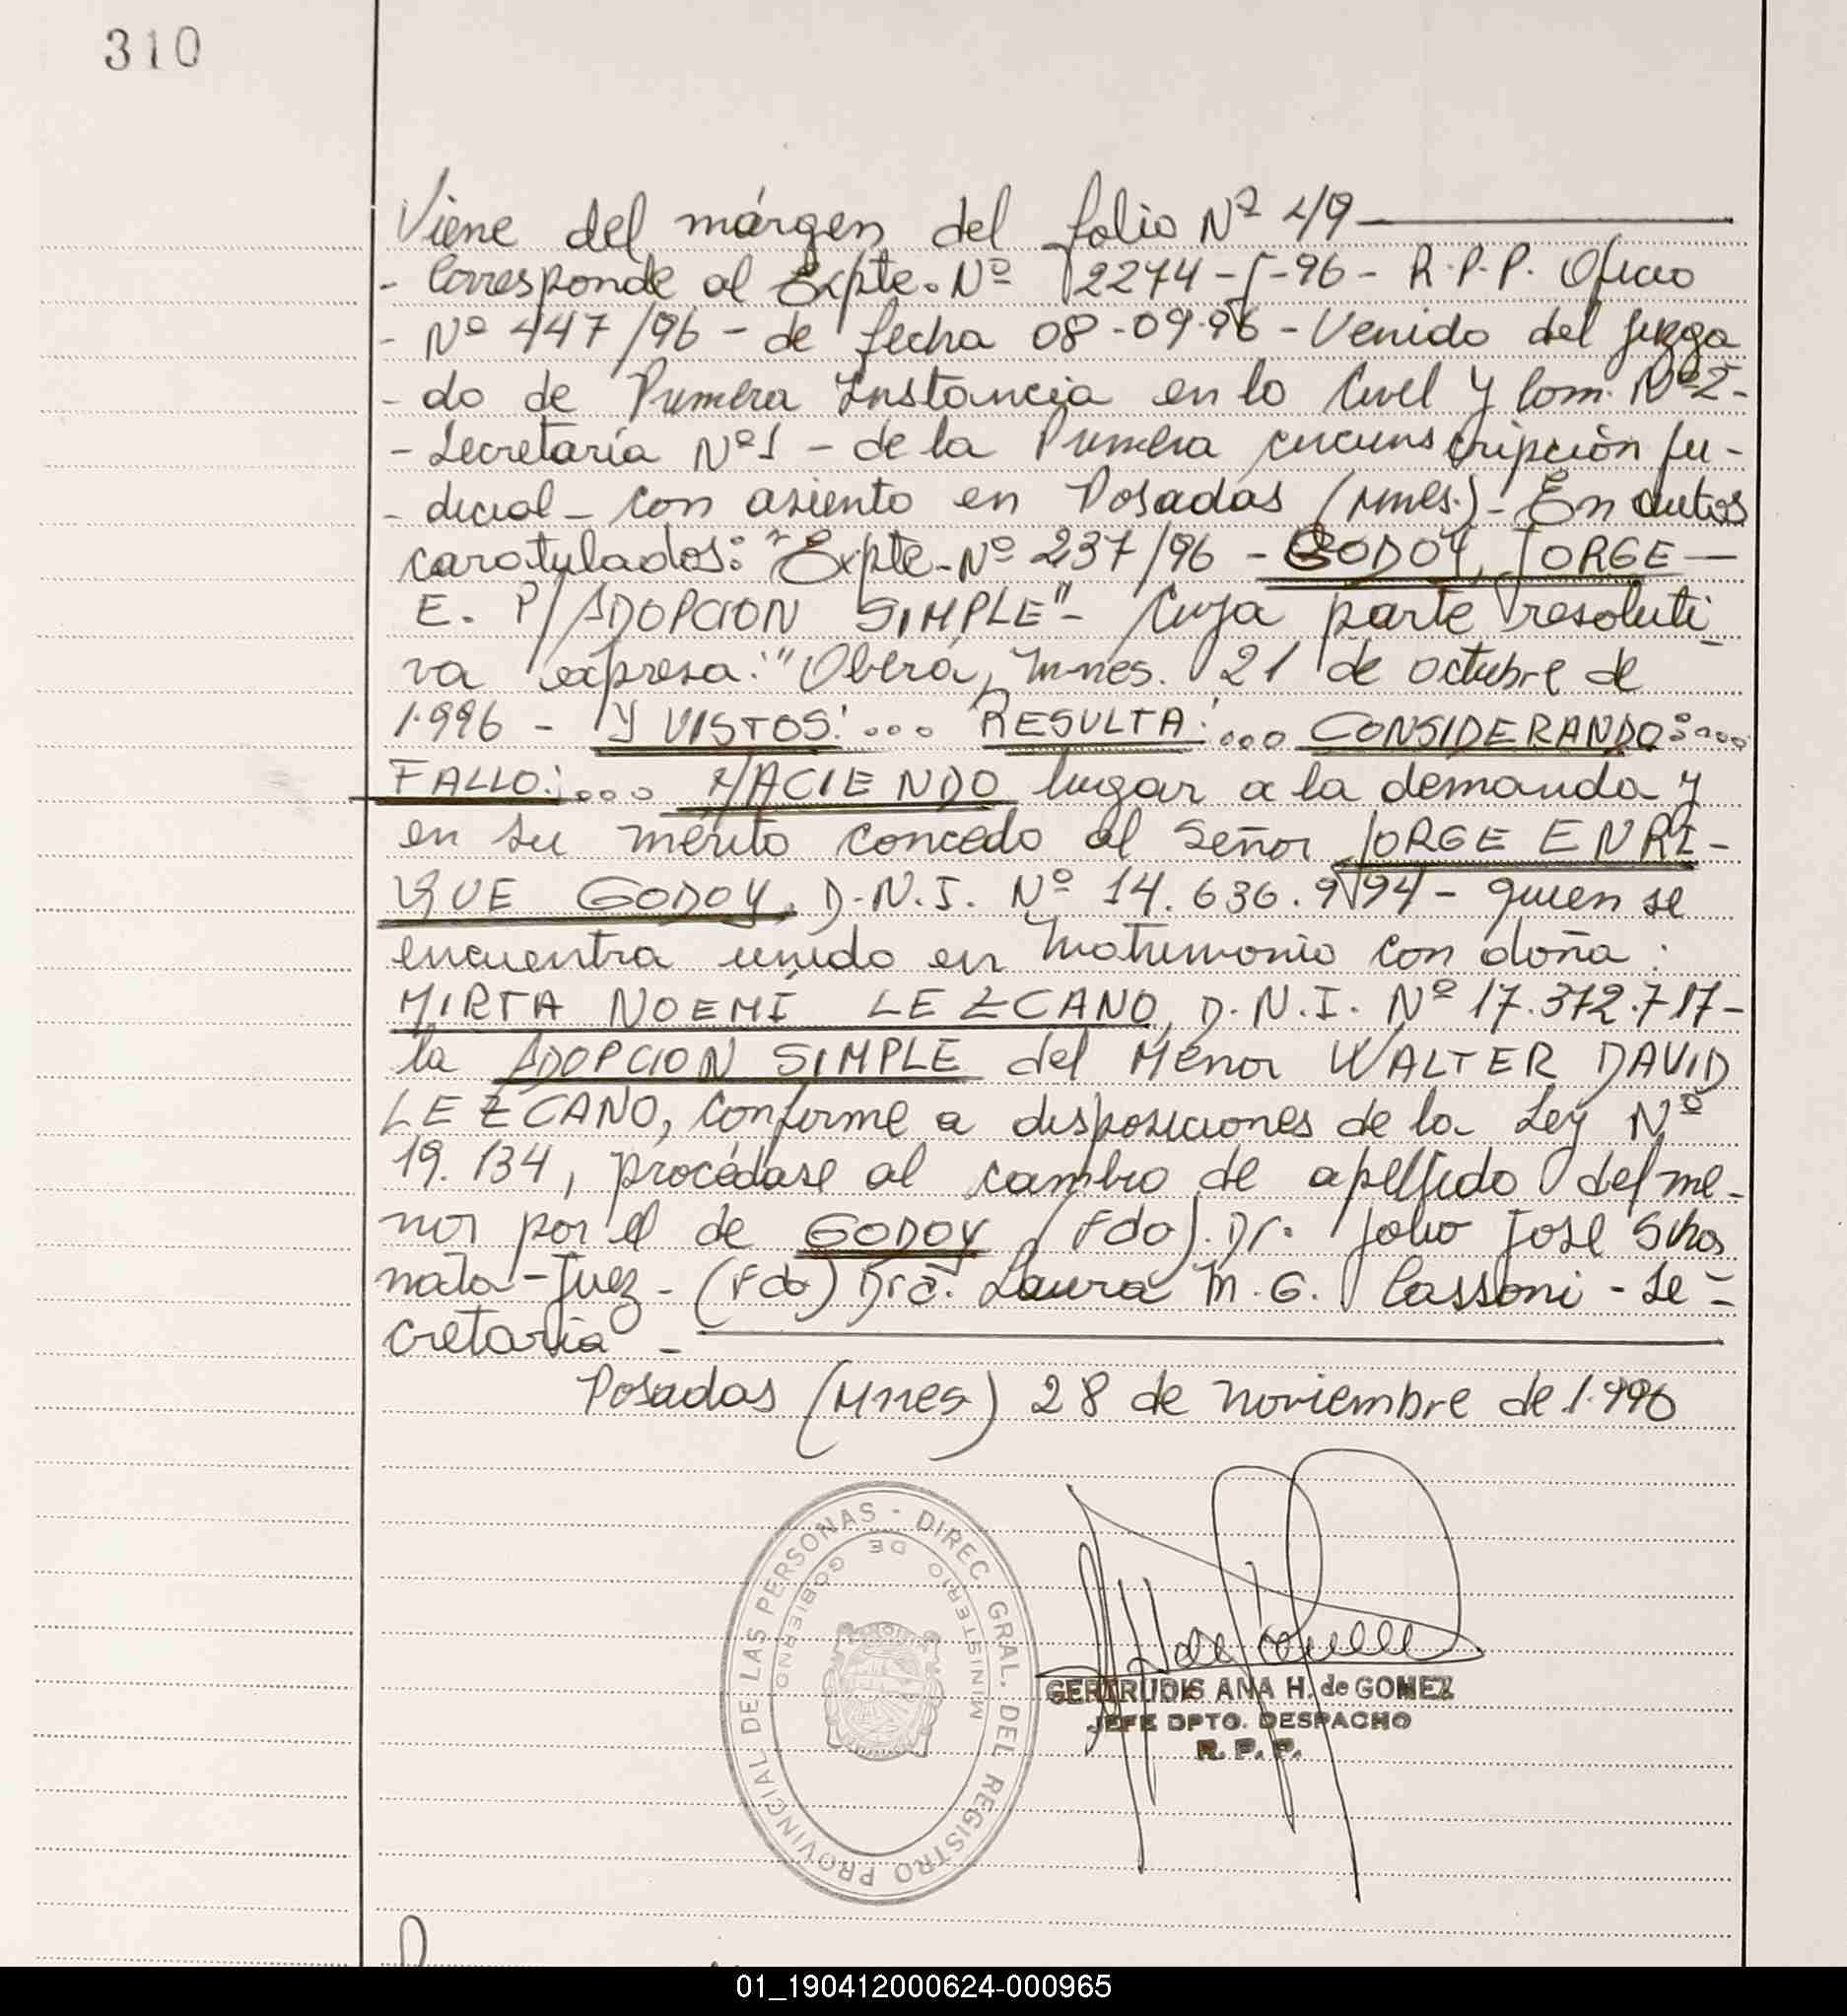 310
Viene del márgen del folio Nº 49
- Corresponde al Expte. Nº 2274-J-96 - R.P.P. Oficio
- Nº 447/96 - de fecha 08-09-96 - Venido del Juzga
- do de Primera Instancia en lo Civil y Com. Nº 2 -
- Secretaría Nº 1 - de la Primera circunscripción Ju-
- dicial - con asiento en Posadas (Mnes.) - En autos
caratulados: "Expte. Nº 237/96 - GODOY, JORGE
E. P/ADOPCION SIMPLE" - Cuya parte resoluti
va expresa: "Oberá, Mnes. 21 de octubre de
1.996 - Y VISTOS: ... RESULTA: ... CONSIDERANDO: ...
FALLO: ... HACIENDO lugar a la demanda y
en su mérito concedo al Señor JORGE ENRI-
QUE GODOY, D.N.I. Nº 14.636.994 - quien se
encuentra unido en matrimonio con doña:
MIRTA NOEMÍ LEZCANO, D.N.I. Nº 17.372.717 -
la ADOPCION SIMPLE del Menor WALTER DAVID
LEZCANO, conforme a disposiciones de la Ley Nº
19.134, procédase al cambio de apellido del me-
nor por el de GODOY (Fdo). Dr. José
- Juez - (Fdo) Dra. Laura M. G. Cassoni - Se-
cretaria -
Posadas (Mnes) 28 de noviembre de 1.996
DIREC. GRAL. DEL REGISTRO PROVINCIAL DE LAS PERSONAS -
MINISTERIO DE GOBIERNO
GERTRUDIS ANA H. de GOMEZ
JEFE DPTO. DESPACHO
R. P. P.
01_190412000624-000965